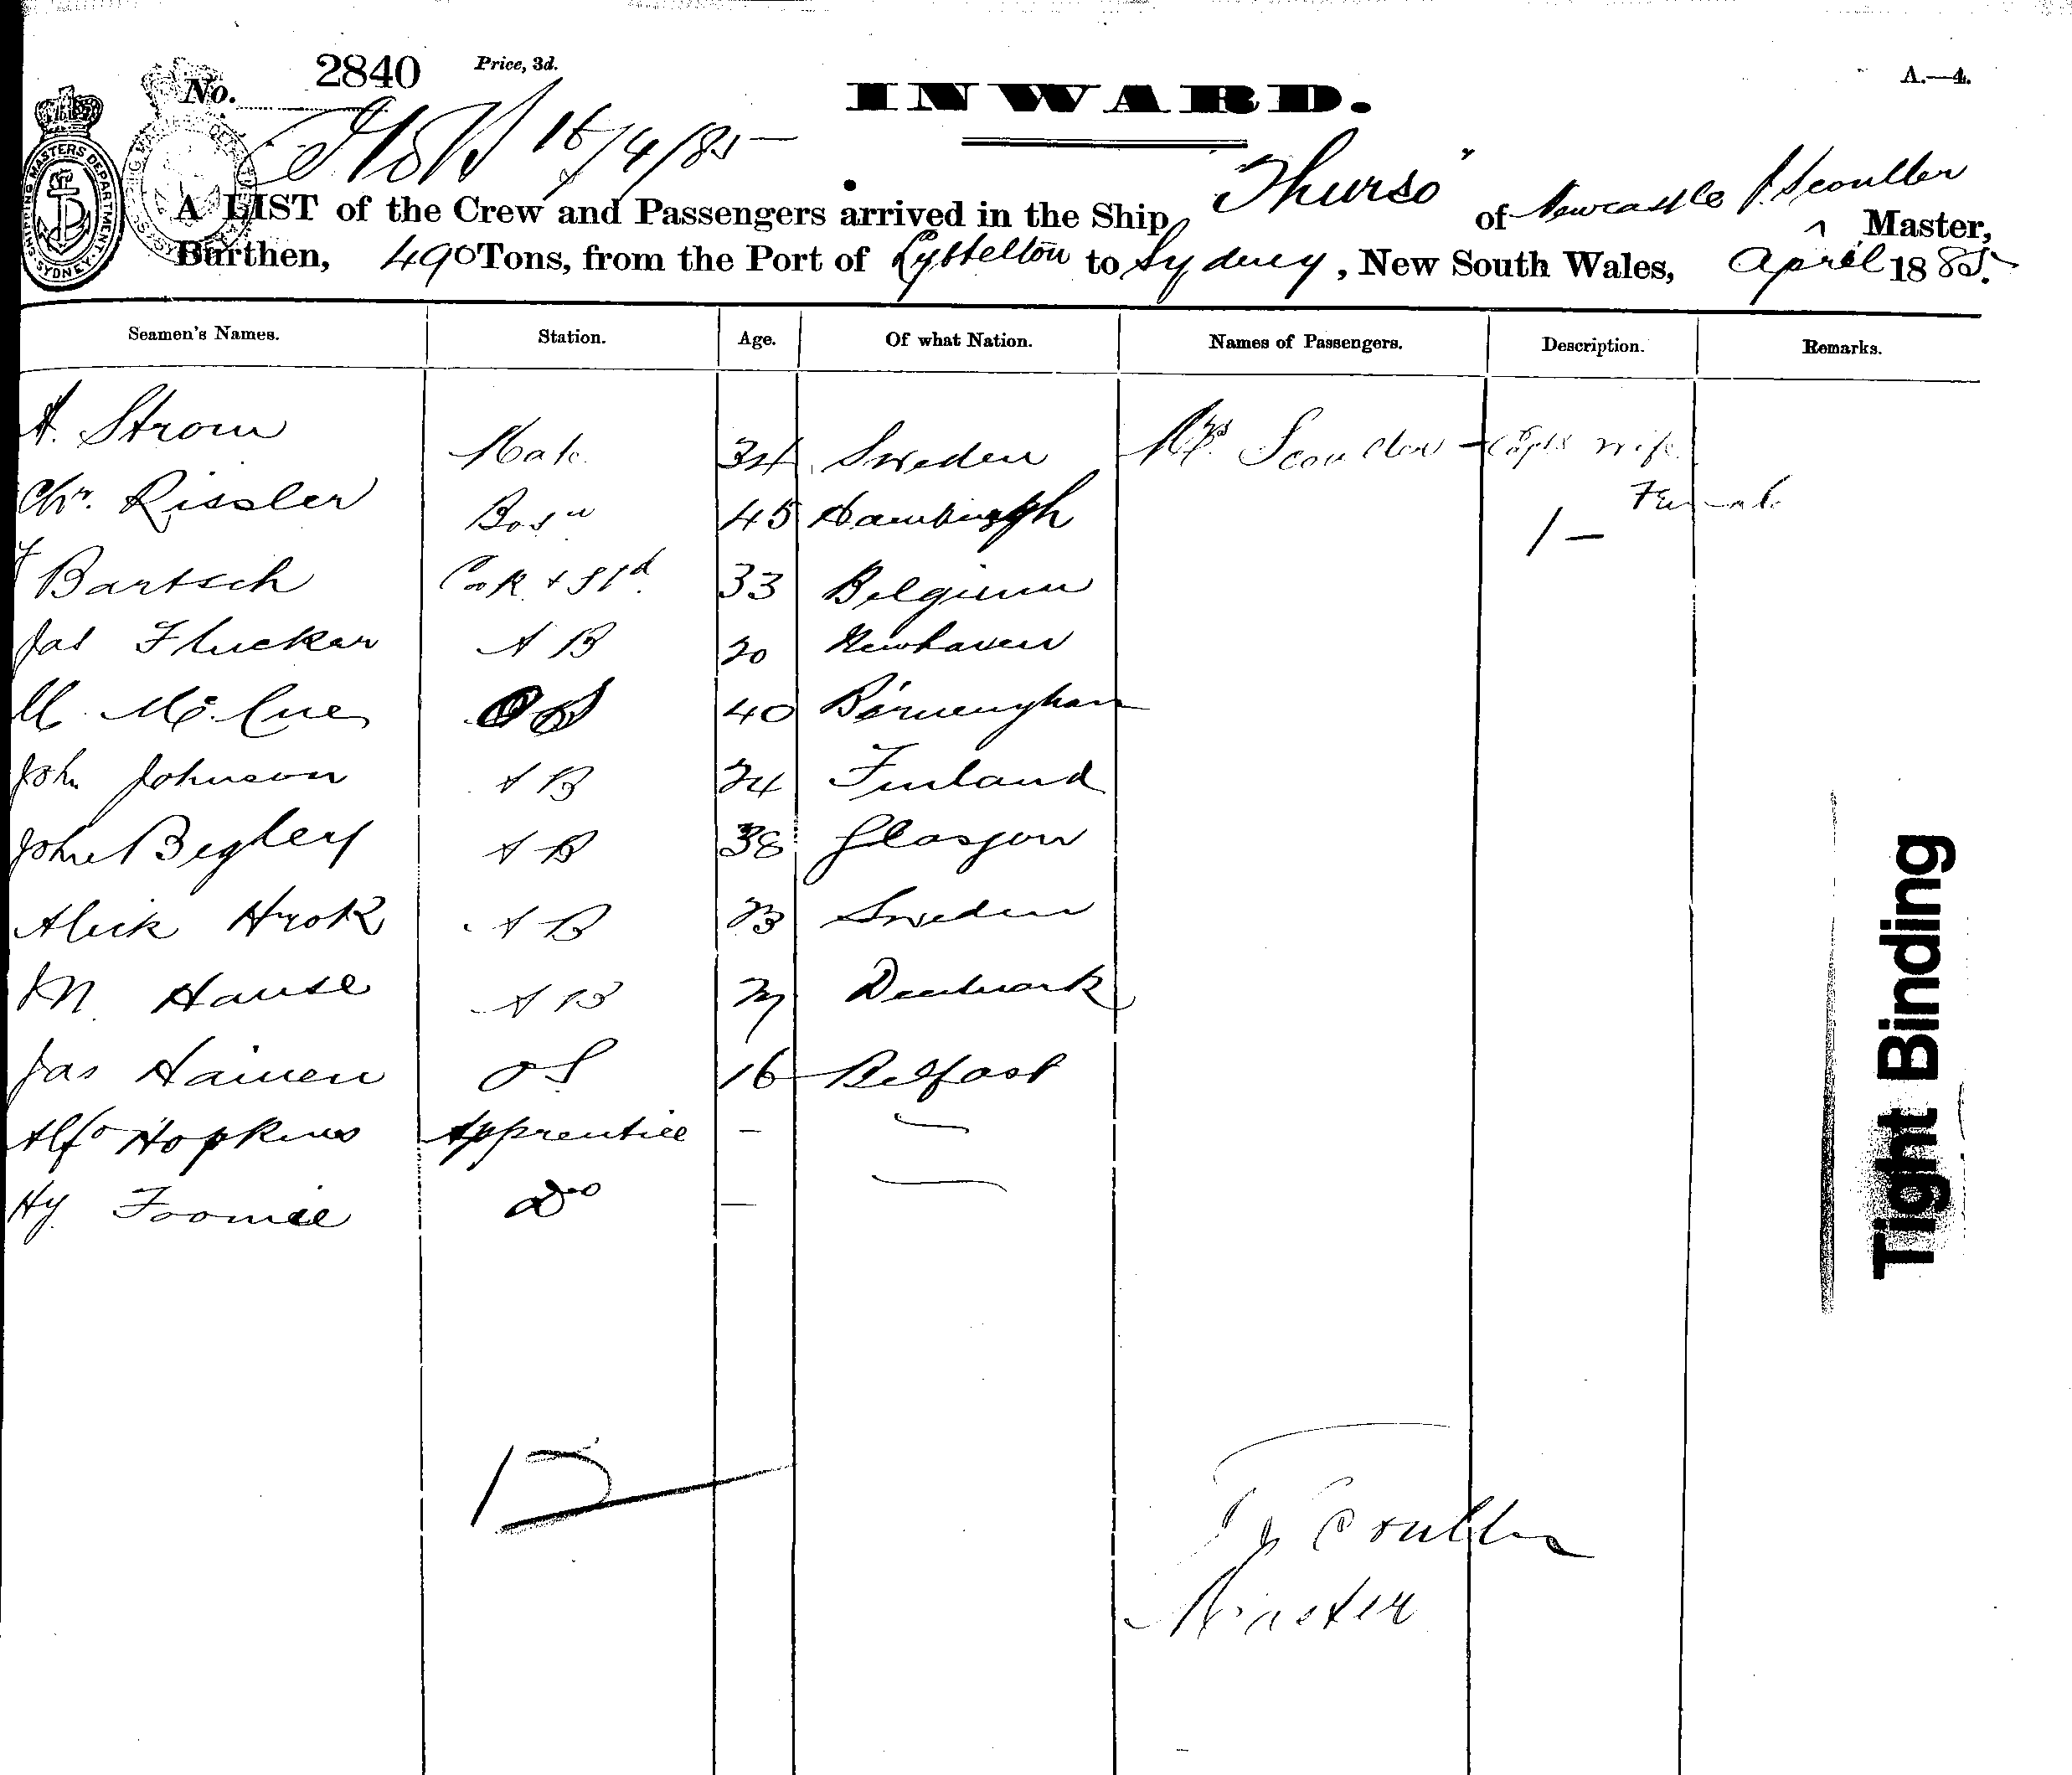 No. 2840 Price, 3d. INWARD. A.—4.
16/4/85
SHIPPING MASTERS DEPARTMENT SYDNEY
A LIST of the Crew and Passengers arrived in the Ship "Thurso" of Newcastle J. Scouller Master,
Burthen, 490 Tons, from the Port of Lyttelton to Sydney, New South Wales, April 1885.
Seamen's Names. Station. Age. Of what Nation. Names of Passengers. Description. Remarks.
A. Strom Mate 34 Sweden Mrs Scouller - Capts wife
Chr. Rissler Bosn 45 Hamburgh Female
1 –
F Bartsch Cook + Std. 33 Belgium
Jas Flucker A B 20 Newhaven
M. McCue 40 Birmingham
John Johnson A B 24 Finland
John Begley A B 38 Glasgow
Alick Hrok A B 23 Sweden
M Hause A B 27 Denmark
Jas Hainen O S 16 Belfast
Alfd Hopkins Apprentice – —
Hy. Do — —
12
J Scouller
Master
Tight Binding